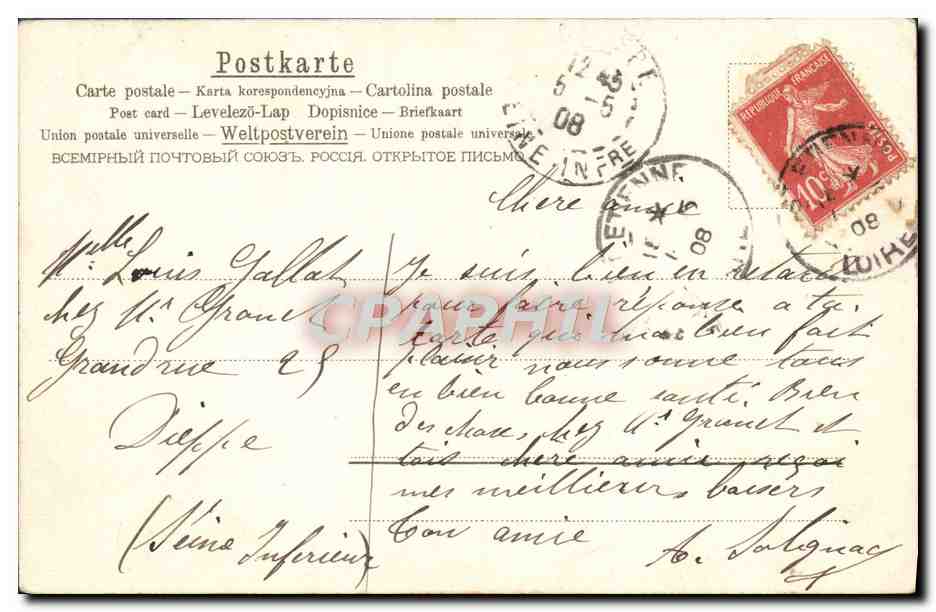 Postkarte
Carte postale — Karta korespondencyjna — Cartolina postale
Post card — Levelező-Lap Dopisnice — Briefkaart
Union postale universelle — Weltpostverein — Unione postale universale
ВСЕМІРНЫЙ ПОЧТОВЫЙ СОЮЗЪ. РОССІЯ. ОТКРЫТОЕ ПИСЬМО
REPUBLIQUE FRANÇAISE
POSTES
10c
5 1 08
INFRE
ETIENNE
08
ETIENNE
08
LOIRE
CPAPHIL
Melle Louis Gallat
chez Mr Granet
Grandrue 25
Dieppe
(Seine Inferieur)
Chere amie
Je suis bien en retard
pour faire réponse a ta
carte qui ma bien fait
plaisir nous sonne tous
en bien bonne santé. Bien
des chose, chez Mr Granet et
tois chère amie reçoi
mes meillieurs baisers
Ton amie
A. Solignac